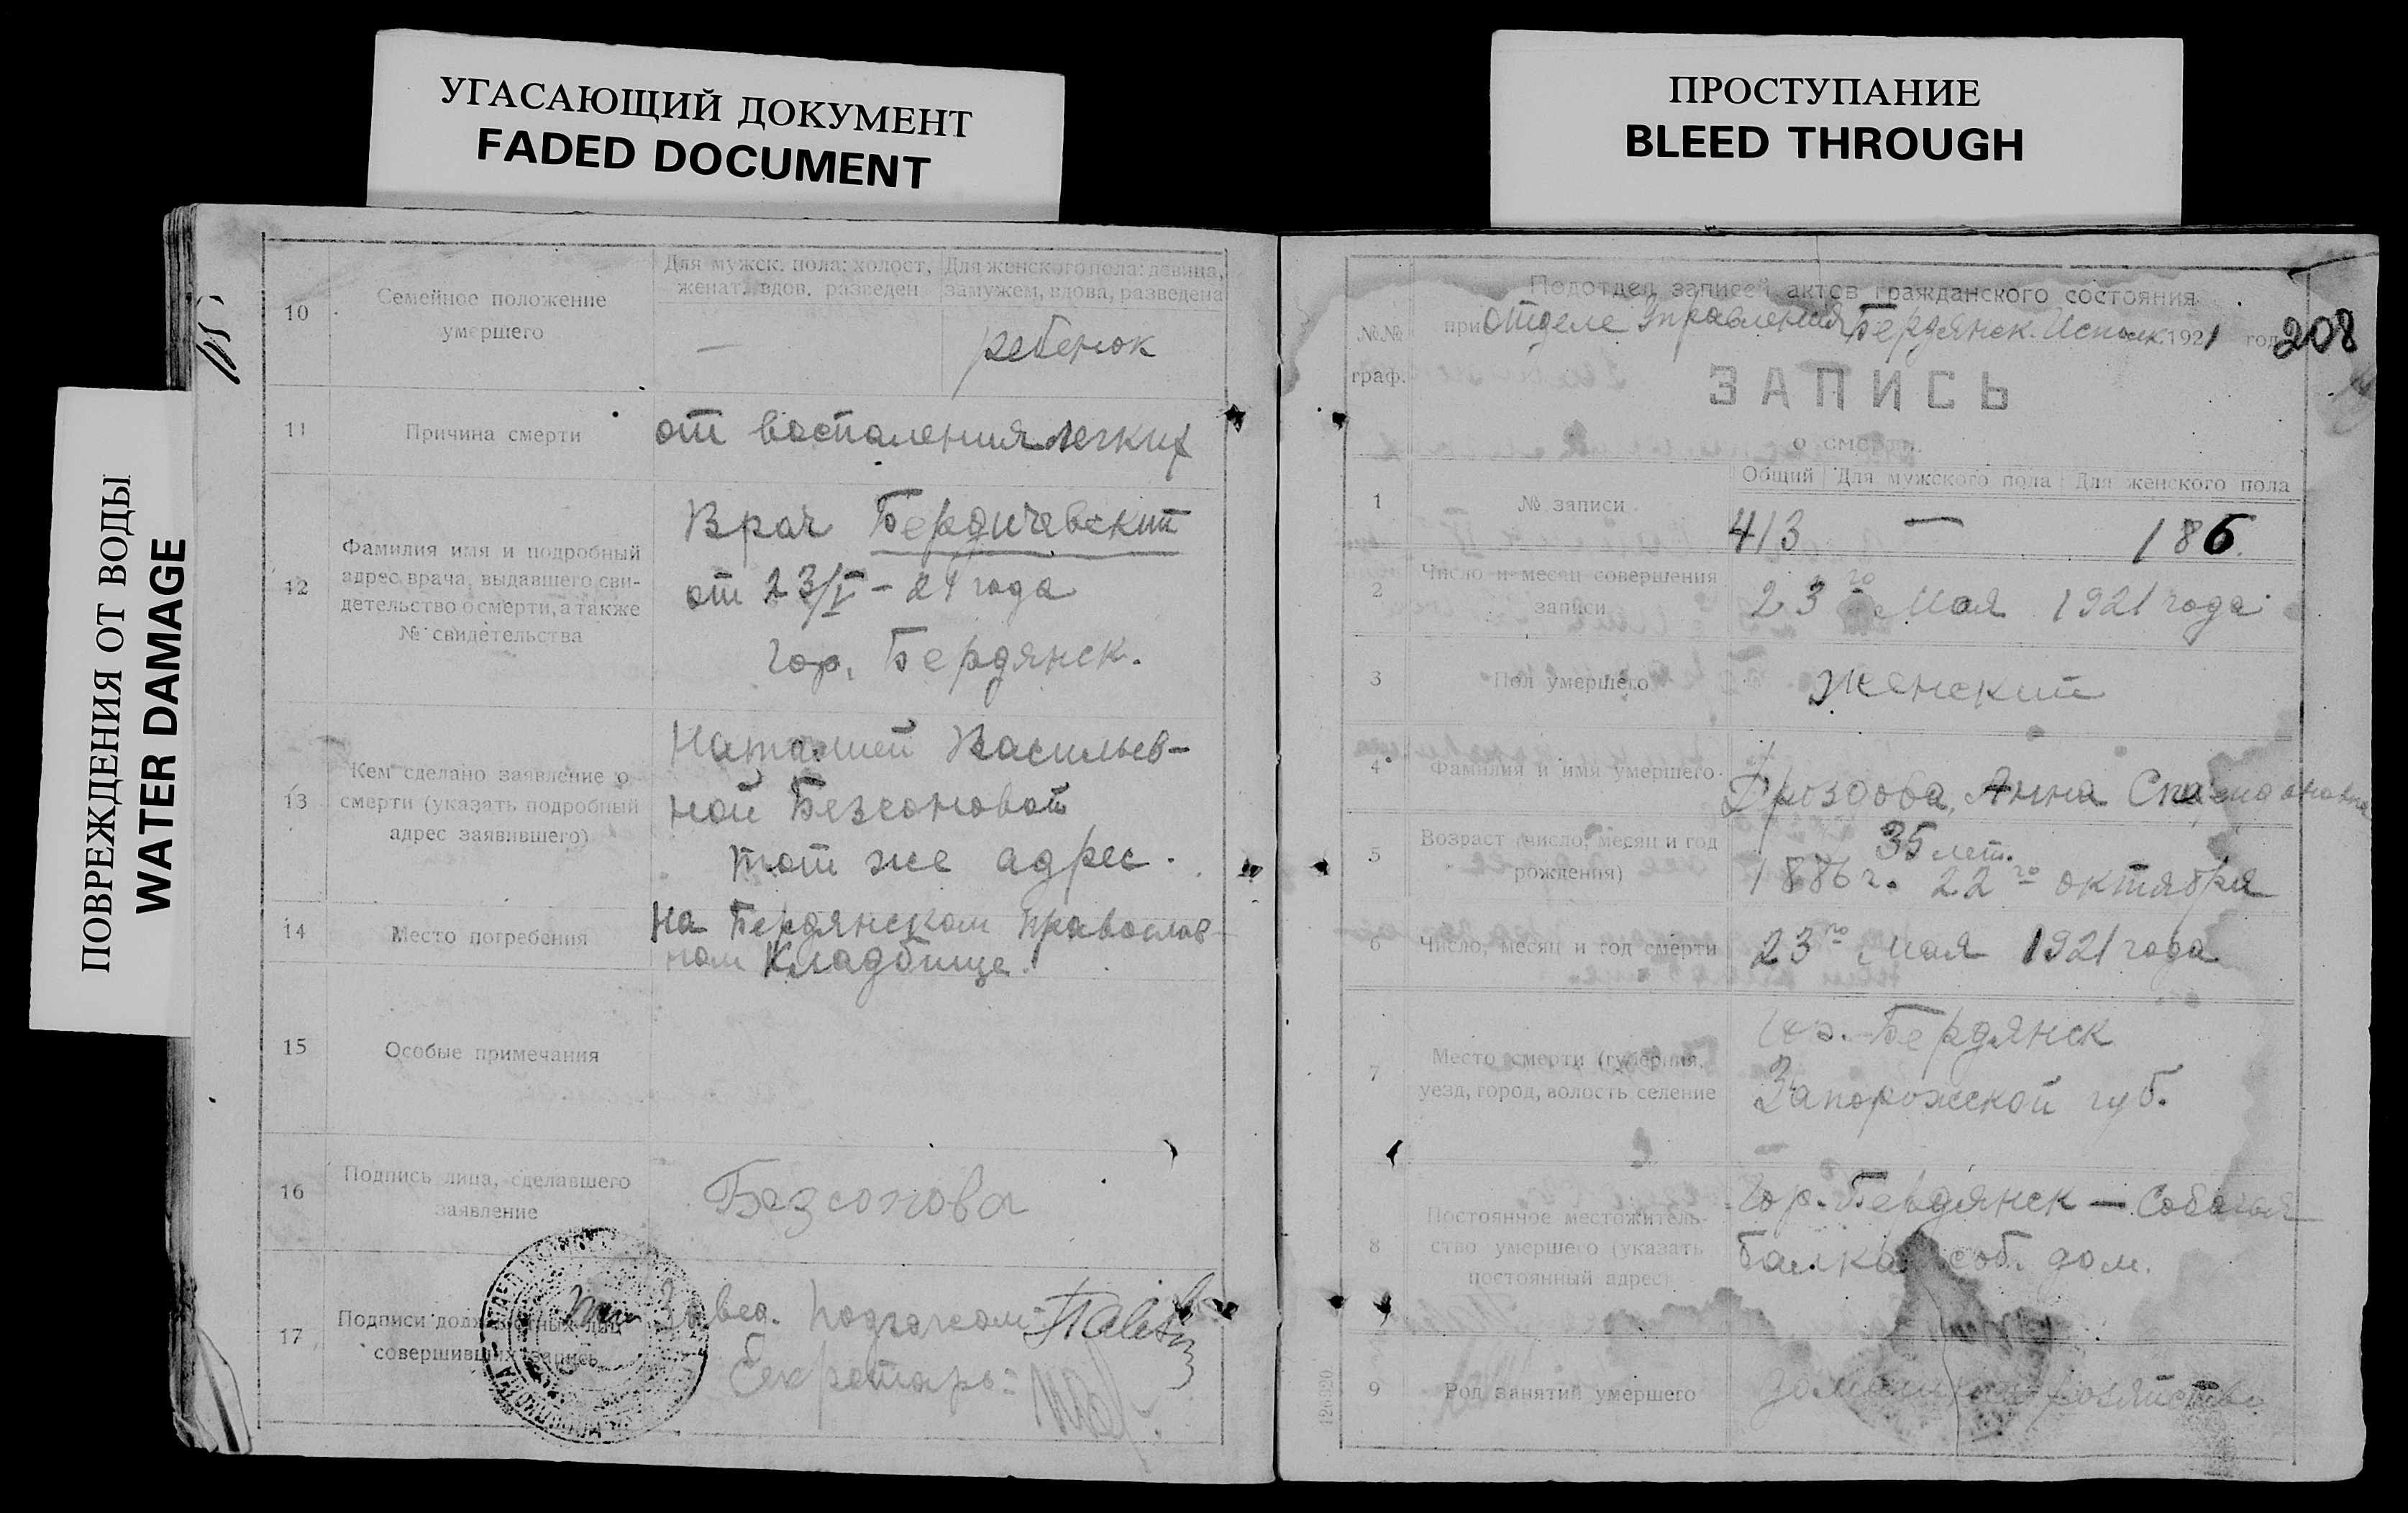 УГАСАЮЩИЙ ДОКУМЕНТ
FADED DOCUMENT
ПРОСТУПАНИЕ
BLEED THROUGH
ПОВРЕЖДЕНИЯ ОТ ВОДЫ
WATER DAMAGE
10
Семейное положение
умершего
Для мужск. пола: холост,
женат, вдов, разведен
—
Для женского пола: девица,
замужем, вдова, разведена
ребенок
11
Причина смерти
от воспаления легких
12
Фамилия имя и подробный
адрес врача, выдавшего сви-
детельство о смерти, а также
№ свидетельства
Врач Бердичевский
от 23/V – 21 года
гор. Бердянск.
13
Кем сделано заявление о
смерти (указать подробный
адрес заявившего)
Наталией Васильев-
ной Безсоновой
тот же адрес.
14
Место погребения
на Бердянском православ-
ном кладбище.
15
Особые примечания
16
Подпись лица, сделавшего
заявление
Безсонова
17
Подписи должностных лиц
совершивших запись
Завед. подзагсом
Секретарь:
Подотдел записей актов гражданского состояния
при отделе Управления Бердянск. Исполк. 1921 год
208
№№
граф.
ЗАПИСЬ
о смерти.
Общий
Для мужского пола
Для женского пола
1
№ записи
413
—
186.
2
Число и месяц совершения
записи
23го Мая 1921 года
3
Пол умершего
Женский
4
Фамилия и имя умершего
Дроздова, Анна
5
Возраст (число, месяц и год
рождения)
35 лет.
1886 г. 22го октября
6
Число, месяц и год смерти
23го Мая 1921 года
7
Место смерти (губерния,
уезд, город, волость селение
гор. Бердянск
Запорожской губ.
8
Постоянное местожитель-
ство умершего (указать
постоянный адрес)
Гор. Бердянск — Собачья
балка соб. дом.
9
Род занятий умершего
хозяйство
126820